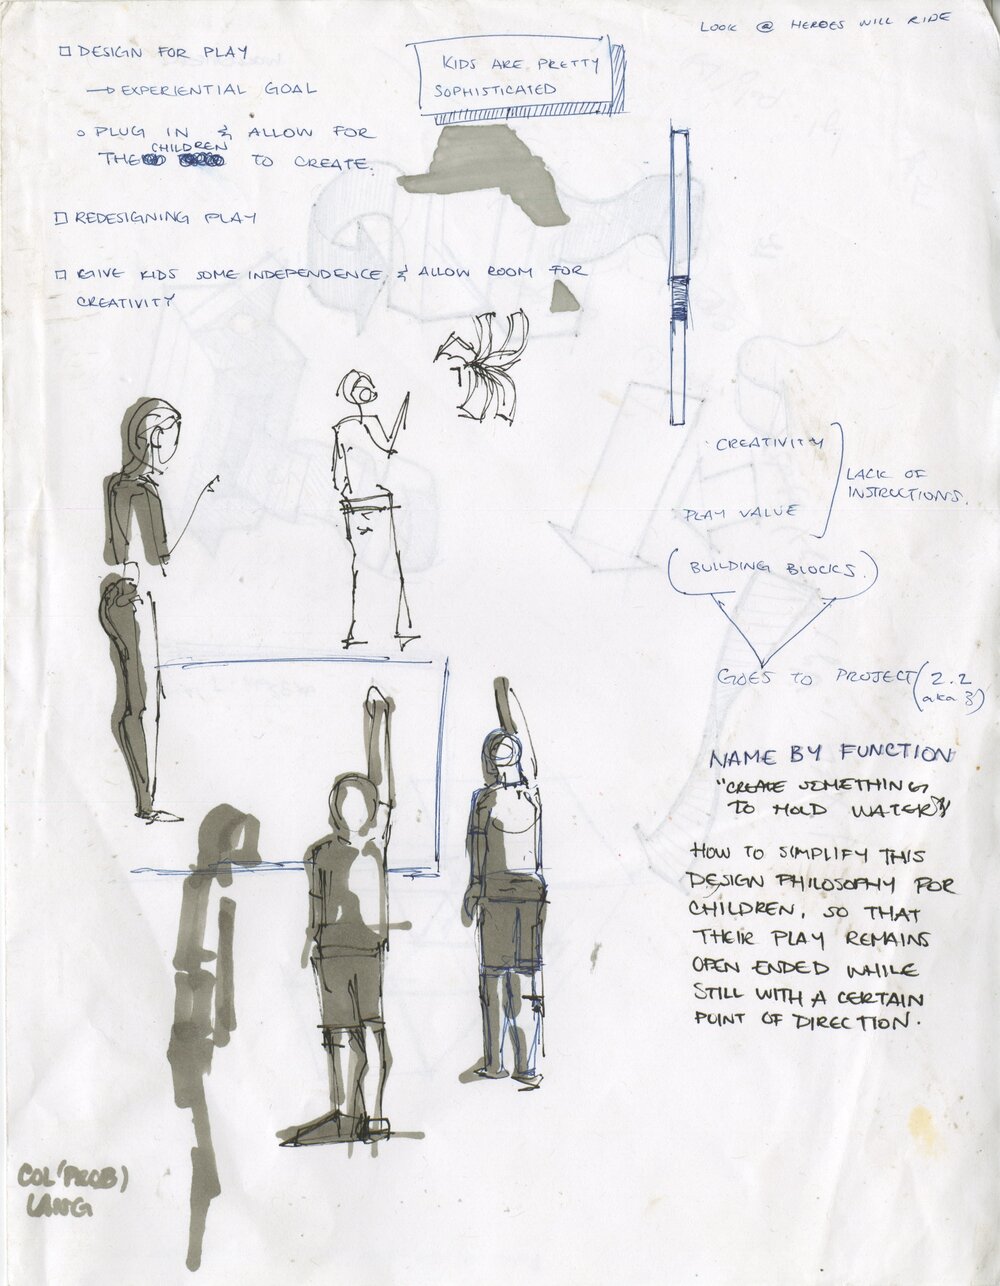 LOOK @ HEROES WILL RIDE
DESIGN FOR PLAY
→ EXPERIENTIAL GOAL
PLUG IN & ALLOW FOR
CHILDREN
THE TO CREATE.
REDESIGNING PLAY
GIVE KIDS SOME INDEPENDENCE & ALLOW ROOM FOR
CREATIVITY
KIDS ARE PRETTY
SOPHISTICATED
CREATIVITY
PLAY VALUE
LACK OF
INSTRUCTIONS.
(BUILDING BLOCKS.)
GOES TO PROJECT (2.2
aka 3)
NAME BY FUNCTION
"CREATE SOMETHING
TO HOLD WATER"
HOW TO SIMPLIFY THIS
DESIGN PHILOSOPHY FOR
CHILDREN, SO THAT
THEIR PLAY REMAINS
OPEN ENDED WHILE
STILL WITH A CERTAIN
POINT OF DIRECTION.
COL (PROB)
LANG